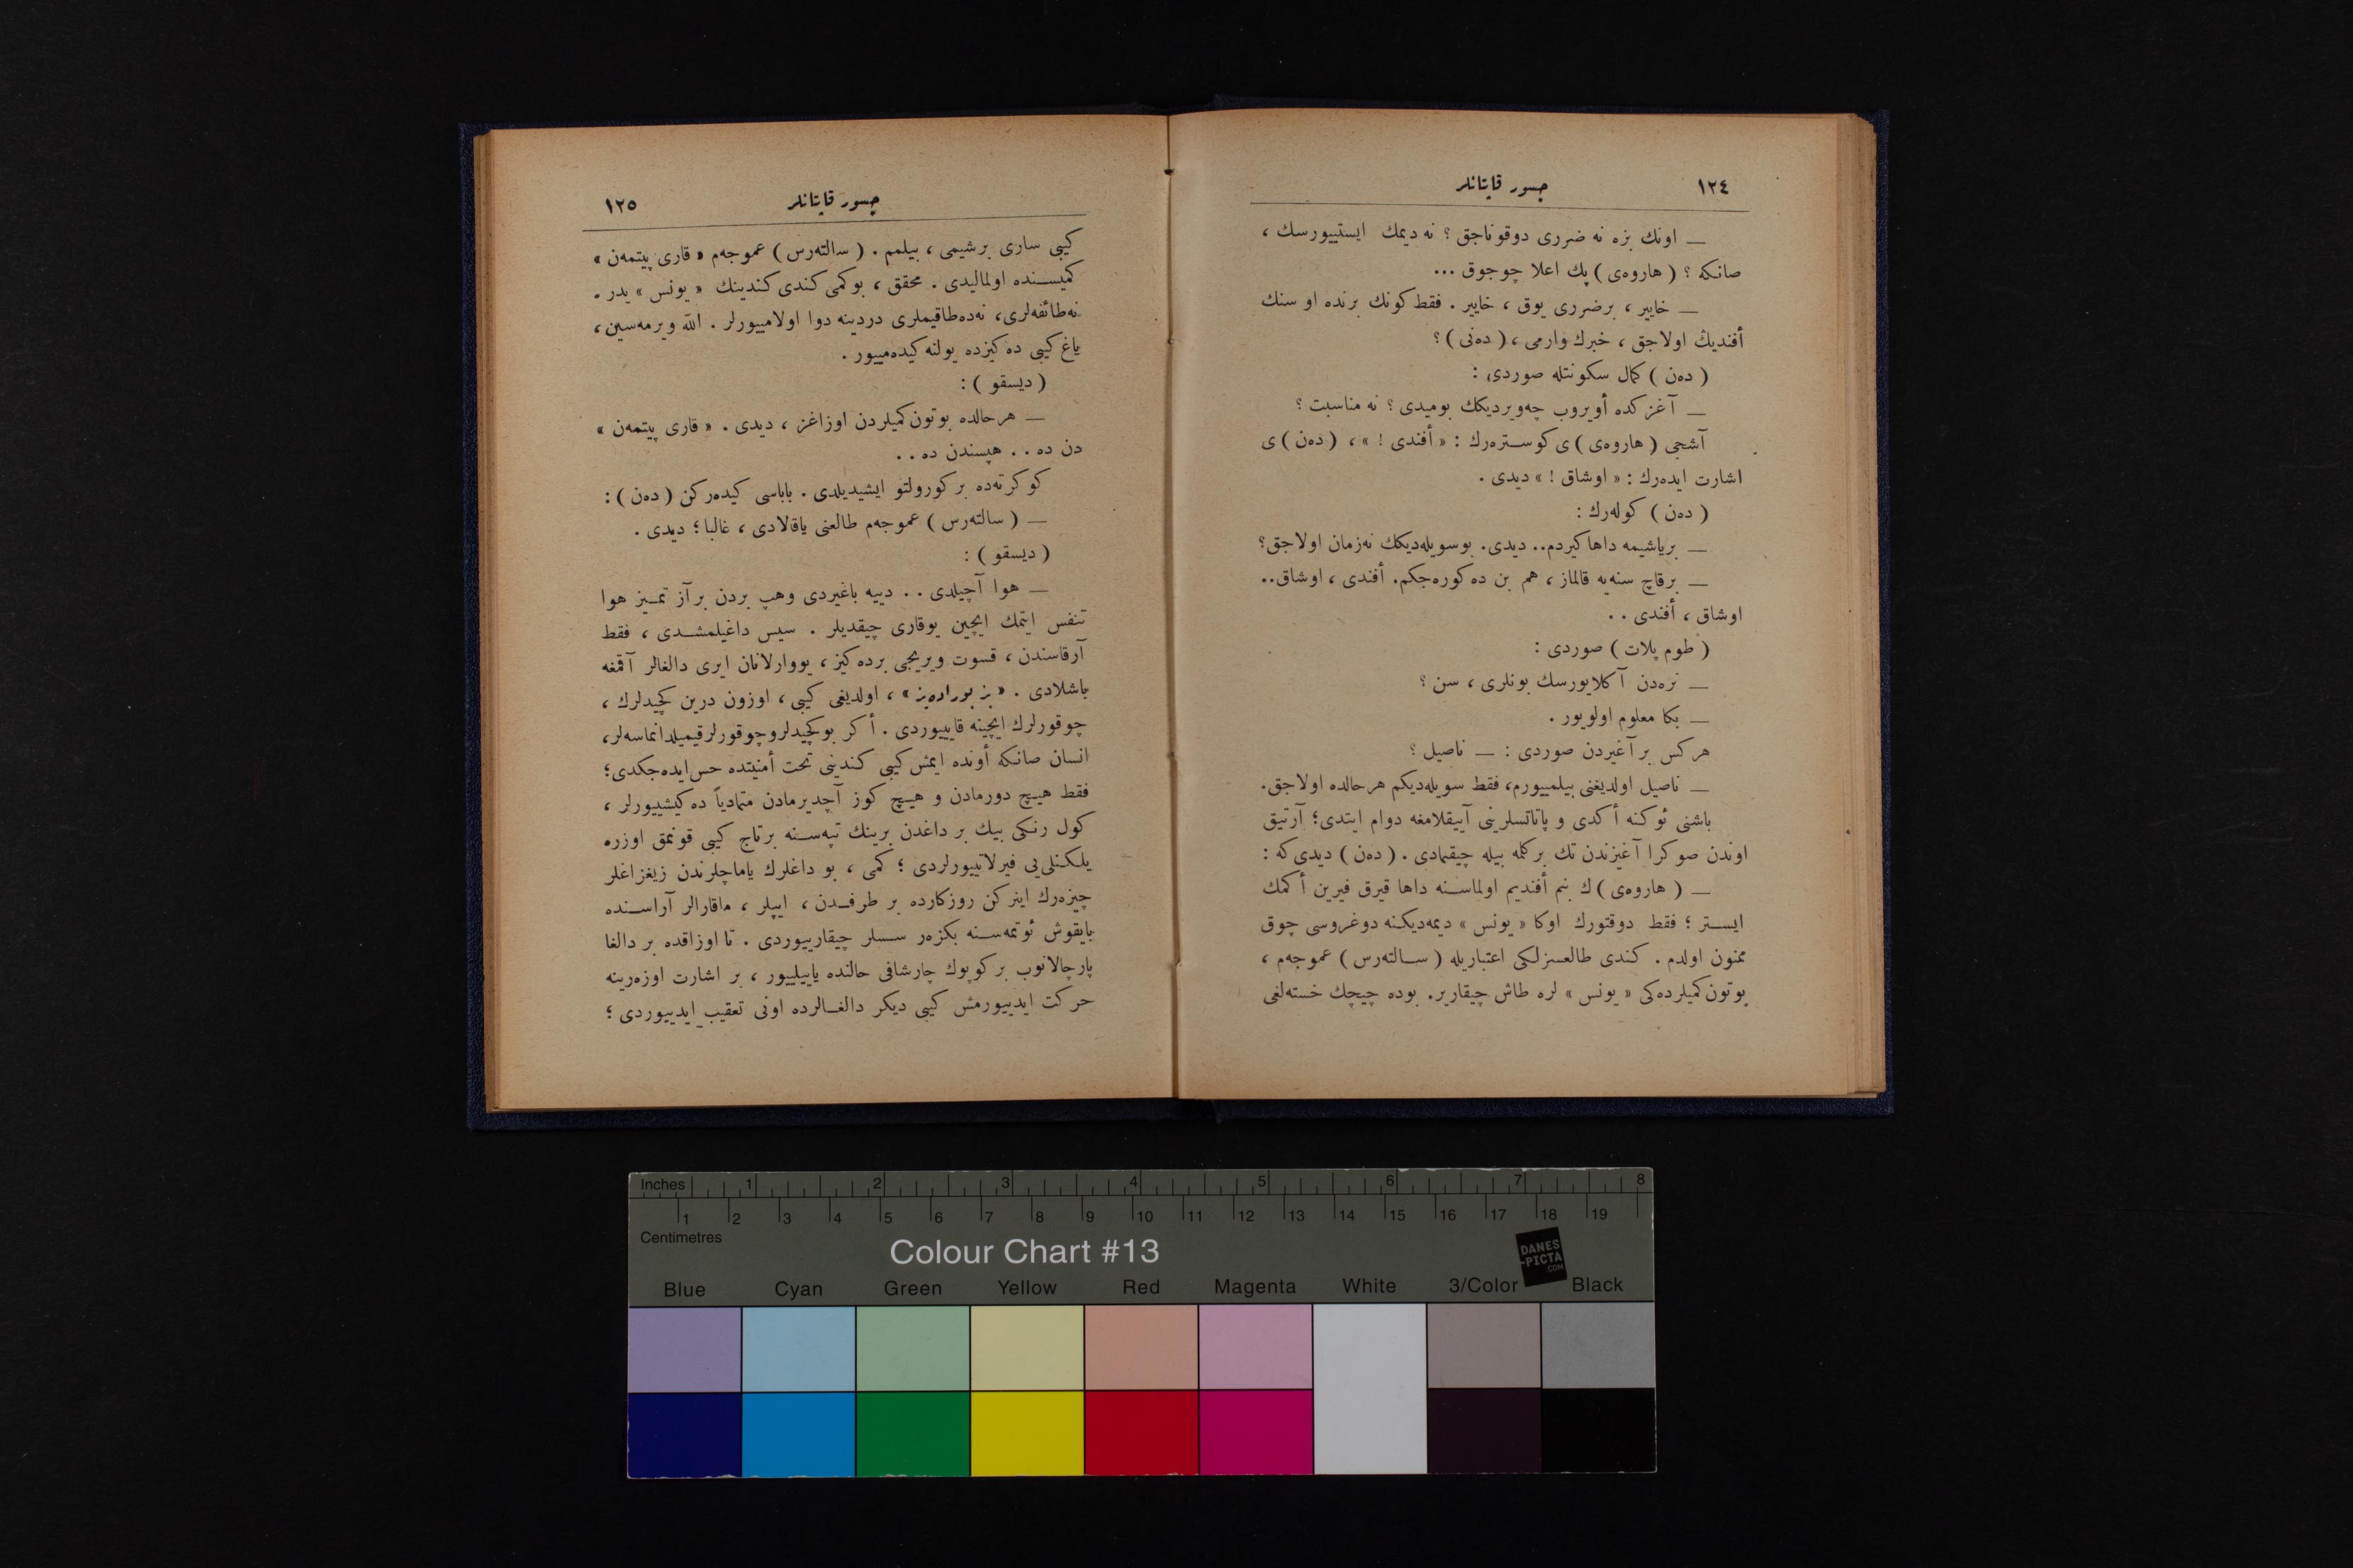 ١٢٤
جسور قاپتانلر
— اونك بزه نه ضررى دوقوناجق ؟ نه ديمك ايستييورسك ،
صانكه ؟ ( هاروه‌ى ) پك اعلا چوجوق ...
— خايير ، برضررى يوق ، خايير . فقط كونك برنده او سنك
أفنديڭ اولاجق ، خبرك وارمى ، ( ده‌نى ) ؟
( ده‌ن ) كمال سكونتله صوردى :
— آغزكده أويروب چه‌ويرديكك بوميدى ؟ نه مناسبت ؟
آشجى ( هاروه‌ى ) ى كوستره‌رك : « أفندى ! » ، ( ده‌ن ) ى
اشارت ايده‌رك : « اوشاق ! » ديدى .
( ده‌ن ) كوله‌رك :
— برياشيمه داها كيردم.. ديدى. بوسويله‌ديكك نه‌زمان اولاجق؟
— برقاچ سنه‌يه قالماز ، هم بن ده كوره‌جكم. أفندى ، اوشاق..
اوشاق ، أفندى . .
( طوم پلات ) صوردى :
— نره‌دن آكلايورسك بونلرى ، سن ؟
— بكا معلوم اولويور .
هركس بر آغيردن صوردى : — ناصيل ؟
— ناصيل اولديغنى بيلمييورم، فقط سويله‌ديكم هرحالده اولاجق.
باشنى ئوكنه أكدى و پاتاتسلرينى آييقلامغه دوام ايتدى؛ آرتيق
اوندن صوكرا آغيزندن تك بركله بيله چيقمادى . ( ده‌ن ) ديدى‌كه :
— ( هاروه‌ى ) ك بنم أفنديم اولماسنه داها قيرق فيرين أكمك
ايستر ؛ فقط دوقتورك اوكا « يونس » ديمه‌ديكنه دوغروسى چوق
ممنون اولدم . كندى طالعسزلكى اعتباريله ( سالته‌رس ) عموجه‌م ،
بوتون كميلرده‌كى « يونس » لره طاش چيقارير. بوده چيچك خسته‌لغى
جسور قاپتانلر
١٢٥
كيبى سارى برشيمى ، بيلمم . ( سالته‌رس ) عموجه‌م « قارى پيتمه‌ن »
كميسنده اولماليدى . محقق ، بوكمى كندى كندينك « يونس » يدر .
نه‌طائفه‌لرى، نه‌ده‌طاقيملرى دردينه دوا اولامييورلر . الله ويرمه‌سين،
ياغ كيبى ده‌كيزده يولنه كيده‌مييور .
( ديسقو ) :
— هرحالده بوتون كميلردن اوزاغز ، ديدى . « قارى پيتمه‌ن »
دن ده . . هپسندن ده . .
كوكرته‌ده بر كورولتو ايشيديلدى . باباسى كيده‌ركن ( ده‌ن ) :
— ( سالته‌رس ) عموجه‌م طالعنى ياقالادى ، غالبا ؛ ديدى .
( ديسقو ) :
— هوا آچيلدى . . دييه باغيردى وهپ بردن برآز تميز هوا
تنفس ايتمك ايچين يوقارى چيقديلر . سيس داغيلمشدى ، فقط
آرقاسندن ، قسوت ويريجى برده‌كيز ، يووارلانان ايرى دالغالر آقمغه
باشلادى . « بز بوراده‌يز » ، اولديغى كيبى ، اوزون درين كچيدلرك ،
چوقورلرك ايچينه قاييوردى . أكر بوكچيدلروچوقورلرقيميلدانماسه‌لر،
انسان صانكه أونده ايمش كيبى كندينى تحت أمنيتده حس‌ايده‌جكدى؛
فقط هيچ دورمادن و هيچ كوز آچديرمادن متمادياً ده‌كيشييورلر ،
كول رنكى بيك بر داغدن برينك تپه‌سنه برتاج كيبى قونمق اوزره
يلكنلى‌يى فيرلاتييورلردى ؛ كمى ، بو داغلرك ياماچلرندن زيغزاغلر
چيزه‌رك اينركن روزكارده بر طرفدن ، ايپلر ، ماقارالر آراسنده
بايقوش ئوتمه‌سنه بكزه‌ر سسلر چيقارييوردى . تا اوزاقده بر دالغا
پارچالانوب بر كوپوك چارشافى حالنده ياييلييور ، بر اشارت اوزه‌رينه
حركت ايدييورمش كيبى ديكر دالغالرده اونى تعقيب ايدييوردى ؛
Inches 1 2 3 4 5 6 7 8
1 2 3 4 5 6 7 8 9 10 11 12 13 14 15 16 17 18 19
Centimetres
Colour Chart #13
DANES
-PICTA
.COM
Blue Cyan Green Yellow Red Magenta White 3/Color Black